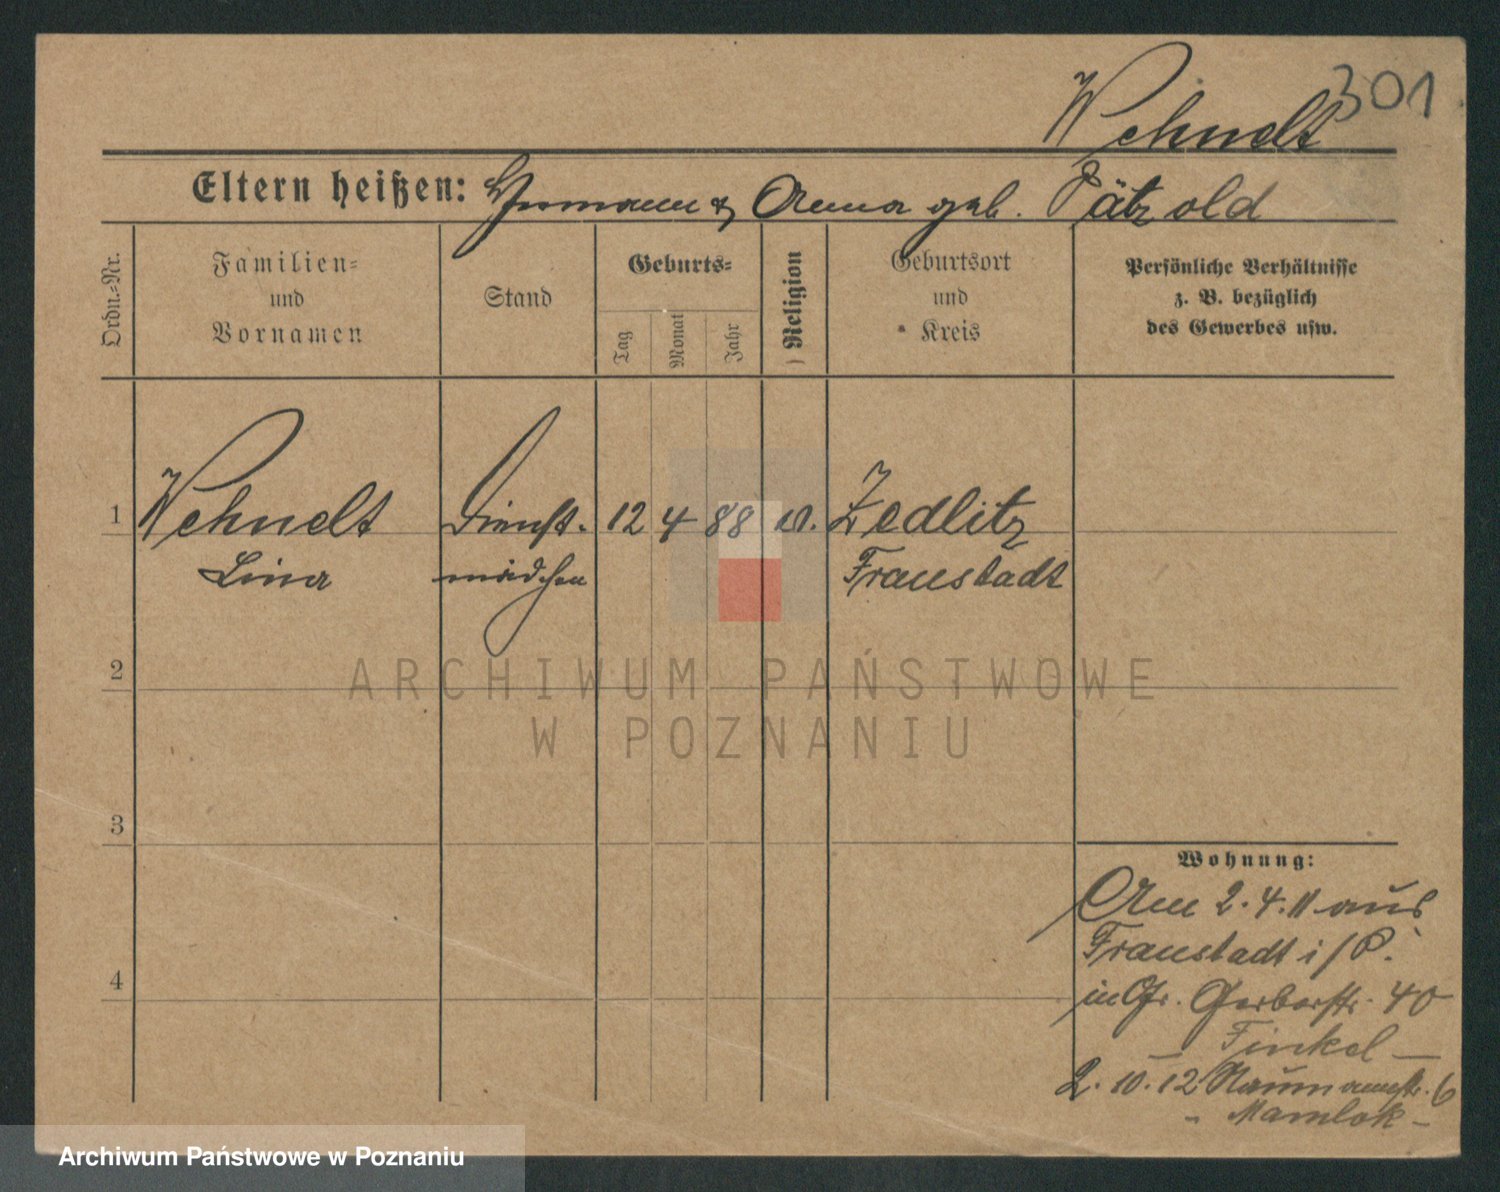 301
Wehnelt
Eltern heißen: Hermann & Anna geb. Pätzold
Ordn.-Nr.
Familien-
und
Vornamen
Stand
Geburts-
Tag
Monat
Jahr
) Religion
Geburtsort
und
Kreis
Persönliche Verhältnisse
z. B. bezüglich
des Gewerbes usw.
1 Wehnelt Dienst- 12 4 88 ev. Zedlitz
Lina mädchen Fraustadt
2
3
4
Wohnung:
Am 2.4.11 aus
Fraustadt i/P.
in Gr. Gerberstr. 40
— Finkel —
2.10.12 Naumannstr. 6
- Mamlok -
ARCHIWUM PAŃSTWOWE
W POZNANIU
Archiwum Państwowe w Poznaniu